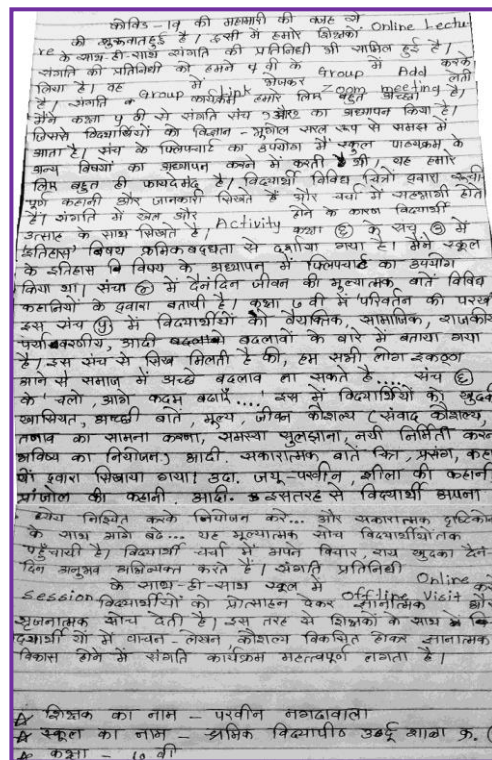 कोविड-19 की महामारी की वजह से
की शुरुवात हुई है। इसी में हमारे शिक्षकों Online Lectu-
re के साथ-ही-साथ संगति की प्रतिनिधी भी सामिल हुई है।
संगति की प्रतिनिधी को हमने 7 वी के Group में Add करके
लिया है। वह Group में Link भेजकर Zoom meeting लेती
है। संगति कार्यक्रम हमारे लिए बहुत अच्छा है,
मैंने कक्षा 7 वी से संगति संच का अध्यापन किया है।
जिससे विद्यार्थियों को विज्ञान-भूगोल सरल रूप से समझ में
आता है। संच के फ्लिपचार्ट का उपयोग मैं स्कूल पाठ्यक्रम के
अन्य विषयों का अध्यापन करने में करती थी, यह हमारे
लिए बहुत ही फायदेमंद है। विद्यार्थी विविध चित्रों द्वारा
पूर्ण कहानी और जानकारी सिखते हैं और चर्चा में सहभागी होते
हैं। संगति में खेल और Activity होने के कारण विद्यार्थी
उत्साह के साथ सिखते हैं। कक्षा ६ के संच में
'इतिहास' विषय क्रमिकबद्धता से दर्शाया गया है। मैंने स्कूल
के इतिहास विषय के अध्यापन में फ्लिपचार्ट का उपयोग
किया था। संच ६ में दैनंदिन जीवन की मुल्यात्मक बातें विविध
कहानियों के द्वारा बतायी है। कक्षा ७ वी में 'परिवर्तन की परख
इस संच ५ में विद्यार्थीयों को वैयक्तिक, सामाजिक, राजकीय
पर्यावरणीय, आदी बदलावों के बारे में बताया गया
है। इस संच से सिख मिलती है की, हम सभी लोग इकठ्ठा
आने से समाज में अच्छे बदलाव ला सकते है.... संच ६
के 'चलो, आगे कदम बढाएँ....' इस में विद्यार्थियों को खुदकी
खासियत, अच्छी बातें, मूल्य, जीवन कौशल्य (संवाद कौशल्य,
तनाव का सामना करना, समस्या सुलझाना, नयी निर्मिती करना
भविष्य का नियोजन) आदी. सकारात्मक बातें चित्र, प्रसंग, कहा-
नी द्वारा सिखाया गया। उदा. जयू-परवीन, शीला की कहानी
प्रांजोल की कहानी. आदी. इसतरह से विद्यार्थी अपना
ध्येय निश्चित करके नियोजन करे... और सकारात्मक दृष्टिकोन
के साथ आगे बढे... यह मूल्यात्मक सोच विद्यार्थीयोतक
पहुँचायी है। विद्यार्थी चर्चा में अपने विचार, राय खुदका दैनं-
दिन अनुभव अभिव्यक्त करते हैं। संगति प्रतिनिधी Online
Session के साथ-ही-साथ स्कूल में Offline visit कर
विद्यार्थीयों को प्रोत्साहन देकर ज्ञानात्मक और
सृजनात्मक सोच देती है। इस तरह से शिक्षकों के साथ वि-
द्यार्थीयों में वाचन-लेखन, कौशल्य विकसित होकर ज्ञानात्मक
विकास होने में संगति कार्यक्रम महत्त्वपूर्ण लगता है।
☆ शिक्षक का नाम - परवीन नगदावाला
☆ स्कूल का नाम - श्रमिक विद्यापीठ उर्दू शाळा क्र. (
☆ कक्षा - 10 वी